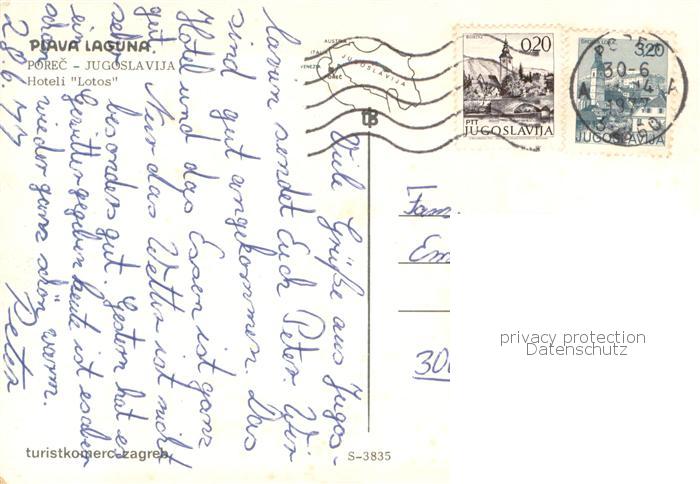 PLAVA LAGUNA
POREČ – JUGOSLAVIJA
Hoteli "Lotos"
AUSTRIA
JUGOSLAVIJA
POREČ
BOHINJ
0,20
PTT
JUGOSLAVIJA
3,20
JUGOSLAVIJA
30-6
1977
Viele Grüße aus Jugos-
lavien sendet Euch Peter. Wir
sind gut angekommen. Das
Hotel und das Essen ist ganz
gut. Nur das Wetter ist nicht
sehr besonders gut. Gestern hat es
ein Gewitter gegeben heute ist es aber
schon wieder ganz schön warm.
28.6.77 Peter
Fam
Em
30
privacy protection
Datenschutz
turistkomerc-zagreb
S-3835